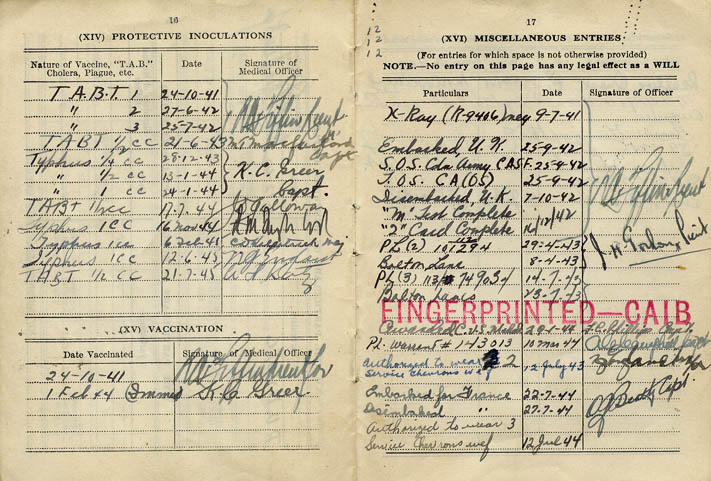 16
(XIV) PROTECTIVE INOCULATIONS
Nature of Vaccine, "T.A.B." Cholera, Plague, etc.
Date
Signature of Medical Officer
T.A.B.T. 1 24-10-41
" 2 27-6-42
" 3 25-7-42
TABT 1/2 cc 21-6-43
Typhus 1/4 CC 28-12-43
" 1/2 CC 13-1-44 K. C. Greer
" 1 CC 24-1-44 Capt.
TABT 1/2cc 17.7.44
Typhus 1CC 16 Nov 44
Typhus 1cc 6 Feb 45
Typhus 1CC 12-6-45
TABT 1/2 CC 21-7-45
(XV) VACCINATION
Date Vaccinated
Signature of Medical Officer
24-10-41
1 Feb 44 Immune K. C. Greer
17
(XVI) MISCELLANEOUS ENTRIES
(For entries for which space is not otherwise provided)
NOTE.—No entry on this page has any legal effect as a WILL
Particulars
Date
Signature of Officer
X-Ray (R-9406) neg 9-7-41
Embarked U.K. 25-9-42
S.O.S. Cdn Army CASF. 25-9-42
T.O.S. CA(OS) 25-9-42
Disembarked, U.K. 7-10-42
"M" Test Complete
"2" Card Complete 16/12/42
PL(2) 29-4-43
Bolton Lane 8-4-43
PL(3) 14-7-43
Bolton Lanes 23-7-43
FINGERPRINTED—CAIB
Awarded C.V.S. Medal 20-1-44
PL. Warrant # 1-13013 10 Mar 44
Authorized to wear 2
Service Chevrons wef 12 July 43
Embarked for France 22-7-44
Disembarked " 27-7-44
Authorized to wear 3
Service Chevrons wef 12 Jul 44